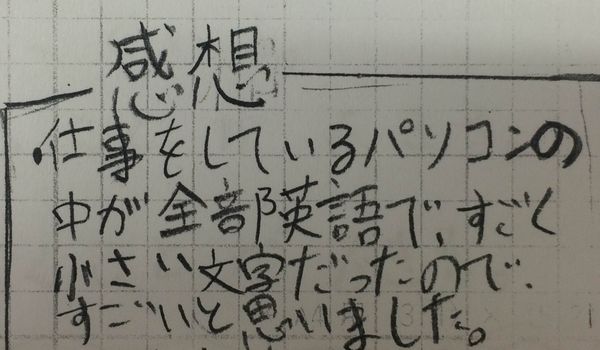 感想
・仕事をしているパソコンの
中が全部英語で、すごく
小さい文字だったので、
すごいと思いました。